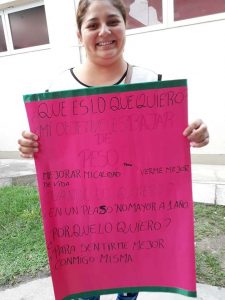 QUE ES LO QUE QUIERO
MI OBJETIVO ES BAJAR
DE
PESO
MEJORAR MI CALIDAD
DE VIDA
VERME MEJOR
EN UN PLASO NO MAYOR A 1 AÑO
POR QUE LO QUIERO?
PARA SENTIRME MEJOR
CONMIGO MISMA